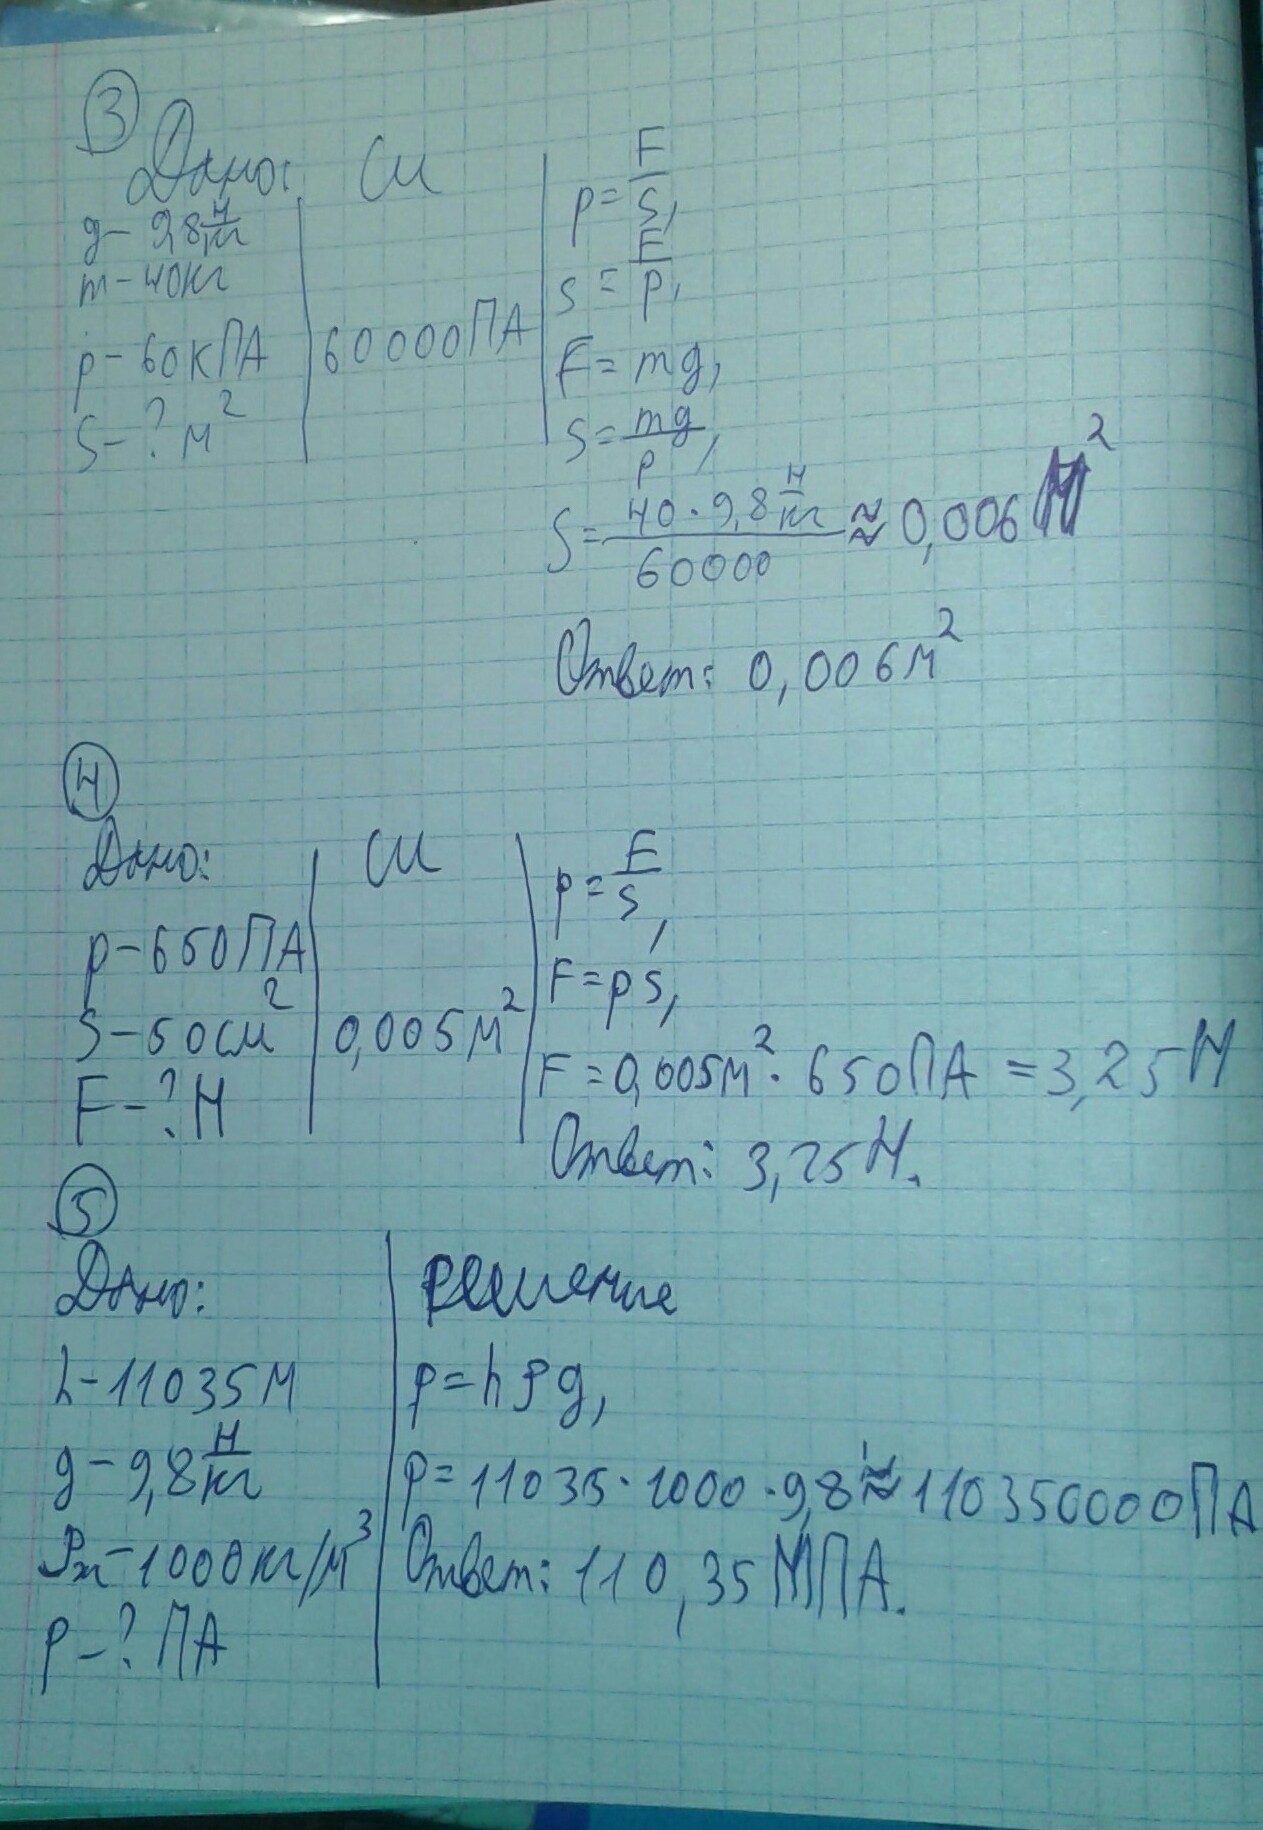 3
Дано: СИ
g- 9,8 Н/кг
m-40кг
p-60кПА 60000ПА
S-? м²
p=F/S,
S=F/p,
F=mg,
S=mg/p,
S=40·9,8 Н/кг/60000≈0,006 М²
Ответ: 0,006м²
4
Дано: СИ
p-650ПА
S-50см² 0,005м²
F-?Н
p=F/S,
F=pS,
F=0,005м²·650ПА=3,25Н
Ответ: 3,25Н.
5
Дано: Решение
h-11035м
g-9,8 Н/кг
ρж-1000кг/м³
P-?ПА
p=hρg,
p=11035·1000·9,8≈110350000ПА
Ответ: 110,35МПА.